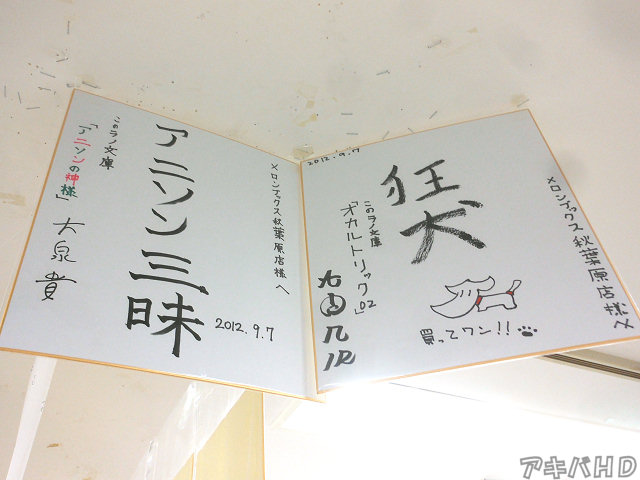 メロンブックス秋葉原店様へ
アニソン三昧
このラノ文庫
「アニソンの神様」大泉貴
2012.9.7
メロンブックス秋葉原店様へ
狂犬
このラノ文庫
「オカルトリック」02
2012.9.17
買ってワン!!
アキバHD